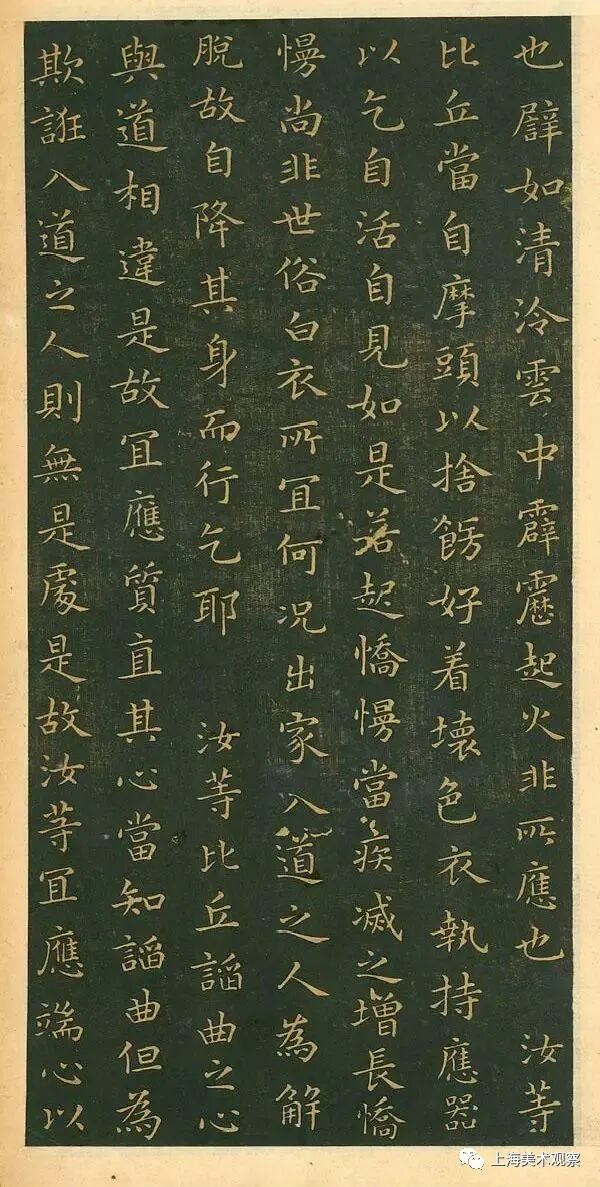 也譬如清冷雲中霹靂起火非所應也　汝等
比丘當自摩頭以捨餝好着壞色衣執持應器
以乞自活自見如是若起憍慢當疾滅之增長憍
慢尚非世俗白衣所宜何况出家入道之人為解
脫故自降其身而行乞耶　汝等比丘諂曲之心
與道相違是故宜應質直其心當知諂曲但為
欺誑入道之人則無是處是故汝等宜應端心以
上海美术观察